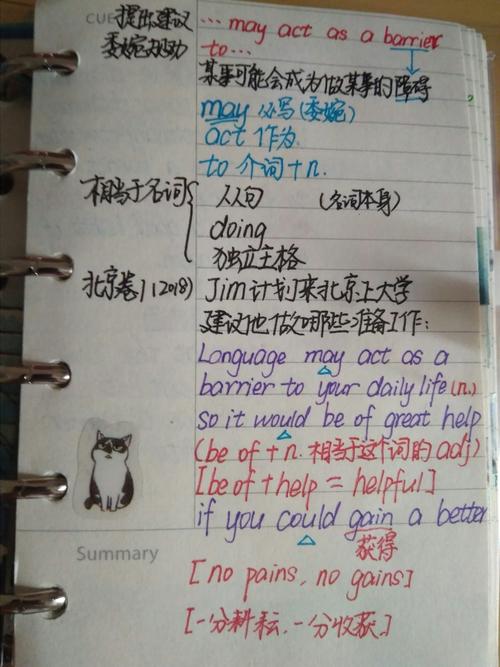 CUE 提出建议
委婉
… may act as a barrier
to…
某事可能会成为做某事的障碍
may 必写(委婉)
act 作为
to 介词+n.
相当于名词
从句 (名词本身)
doing
独立主格
北京卷1(2018)
Jim计划来北京上大学
建议他做哪些准备工作:
Language may act as a
barrier to your daily life (n.)
so it would be of great help
(be of + n. 相当于这个词的adj)
[be of + help = helpful]
if you could gain a better
获得
Summary
[no pains, no gains]
[一分耕耘,一分收获]